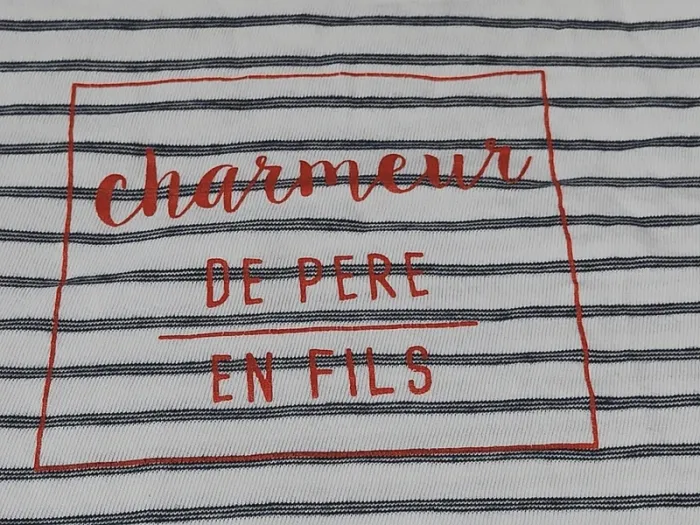 charmeur
DE PERE
EN FILS